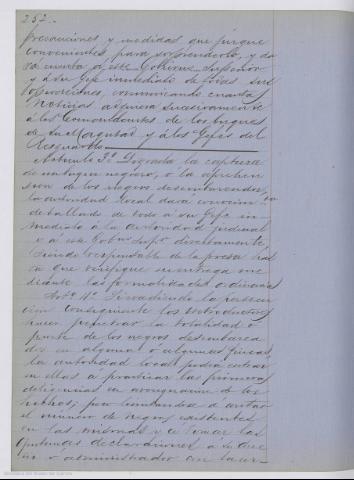 252.
precauciones y medidas que juzgue
convenientes para sorprenderlo, y da
rá cuenta á este Gobierno Superior
y á su Gefe inmediato de todas sus
operaciones, comunicando cuantas
noticias adquiera sucesivamente
á los Comandantes de los buques
de su Magestad y á los Gefes del
Resguardo.
Artículo 3º Lograda la captura
de un buque negrero, ó la aprehen
sion de los negros desembarcados,
la autoridad local dará conocim.to
detallado de todo á su Gefe in-
mediato á la autoridad judicial
ó á este Gob.no Sup.or directamente
siendo responsable de la presa has
ta que verifique su entrega me
diante las formalidades ordinarias
Art.º 4º Si evadiendo la persecu
cion consiguiente los introductores
hacen penetrar la totalidad ó
parte de los negros desembarca
dos en alguna ó algunas fincas,
la autoridad local podrá entrar
en ellas á practicar las primeras
diligencias en averiguacion de los
hechos; pero limitandose á contar
el número de negros existentes
en las mismas y á tomar las
oportunas declaraciones á su due
ño ó administrador con la